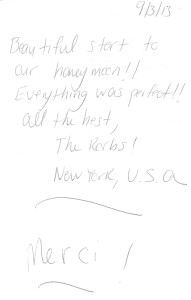 9/3/13
Beautiful start to
our honeymoon!!
Everything was perfect!!
All the best,
The Korbs!
New York, U.S.A
Merci !